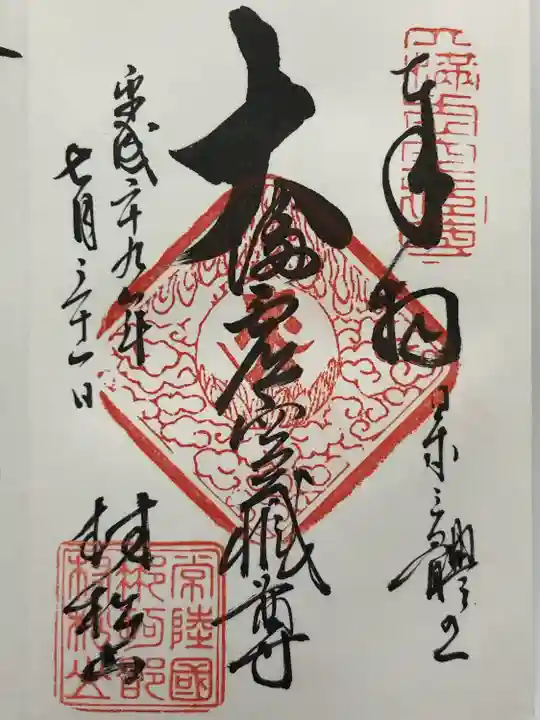 奉拝
日本三體之一
大満虚空蔵尊
平成二十九年
七月三十一日
村松山
常陸國
那珂郡
村松山